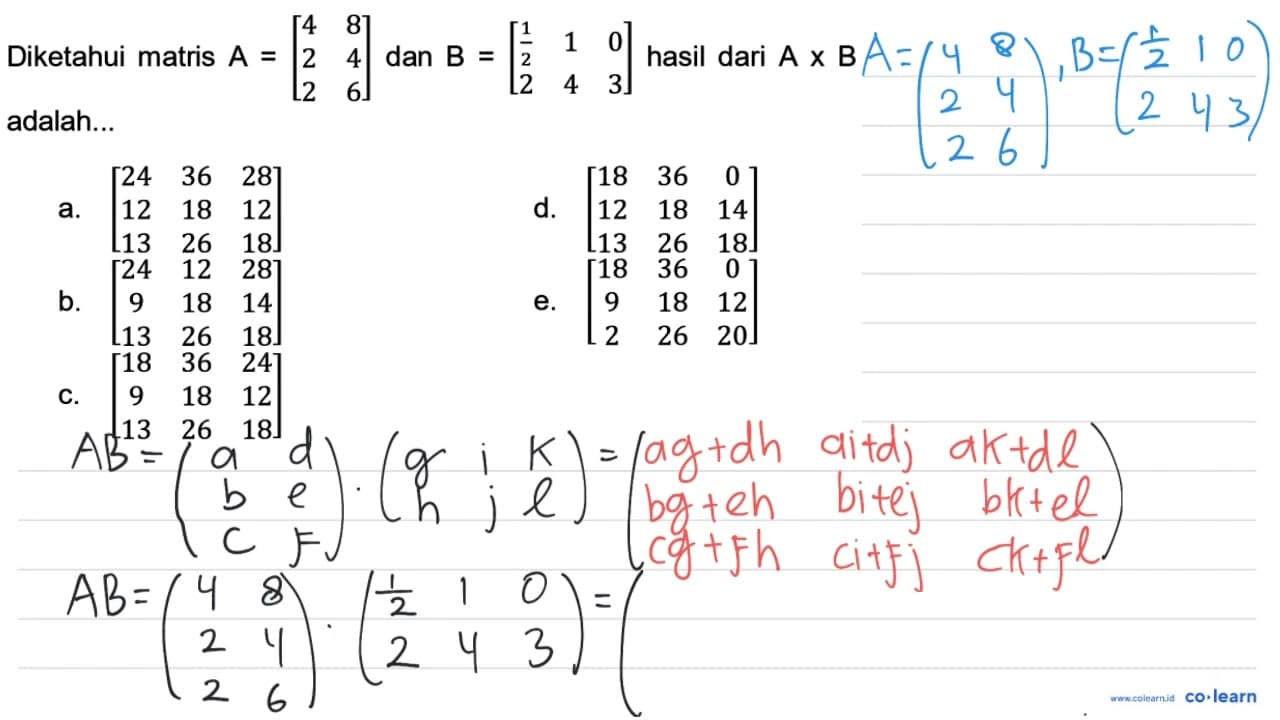 Diketahui matris A = [4 8; 2 4; 2 6] dan B = [1/2 1 0; 2 4 3] hasil dari A x B
adalah...
A = (4 8; 2 4; 2 6), B = (1/2 1 0; 2 4 3)
a. [24 36 28; 12 18 12; 13 26 18]
b. [24 12 28; 9 18 14; 13 26 18]
c. [18 36 24; 9 18 12; 13 26 18]
d. [18 36 0; 12 18 14; 13 26 18]
e. [18 36 0; 9 18 12; 2 26 20]
AB = (a d; b e; c F) . (g i k; h j l) = (ag+dh ai+dj ak+dl; bg+eh bi+ej bk+el; cg+Fh ci+Fj ck+Fl)
AB = (4 8; 2 4; 2 6) . (1/2 1 0; 2 4 3) = (
www.colearn.id co·learn